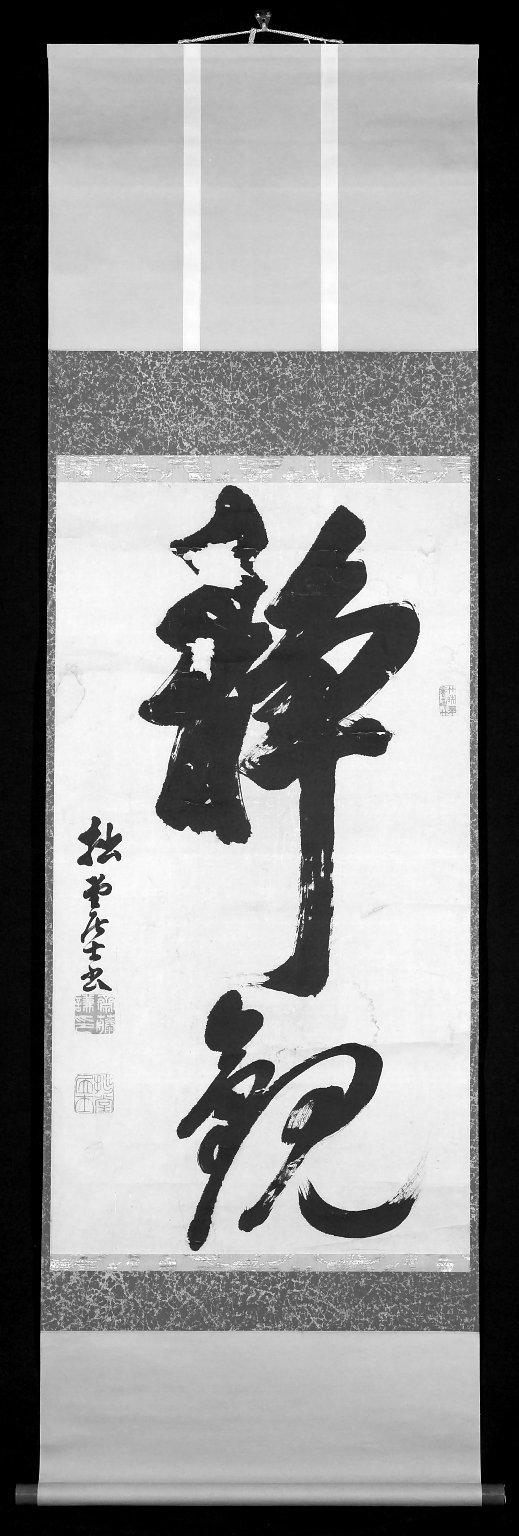 静觀
拙堂居士書